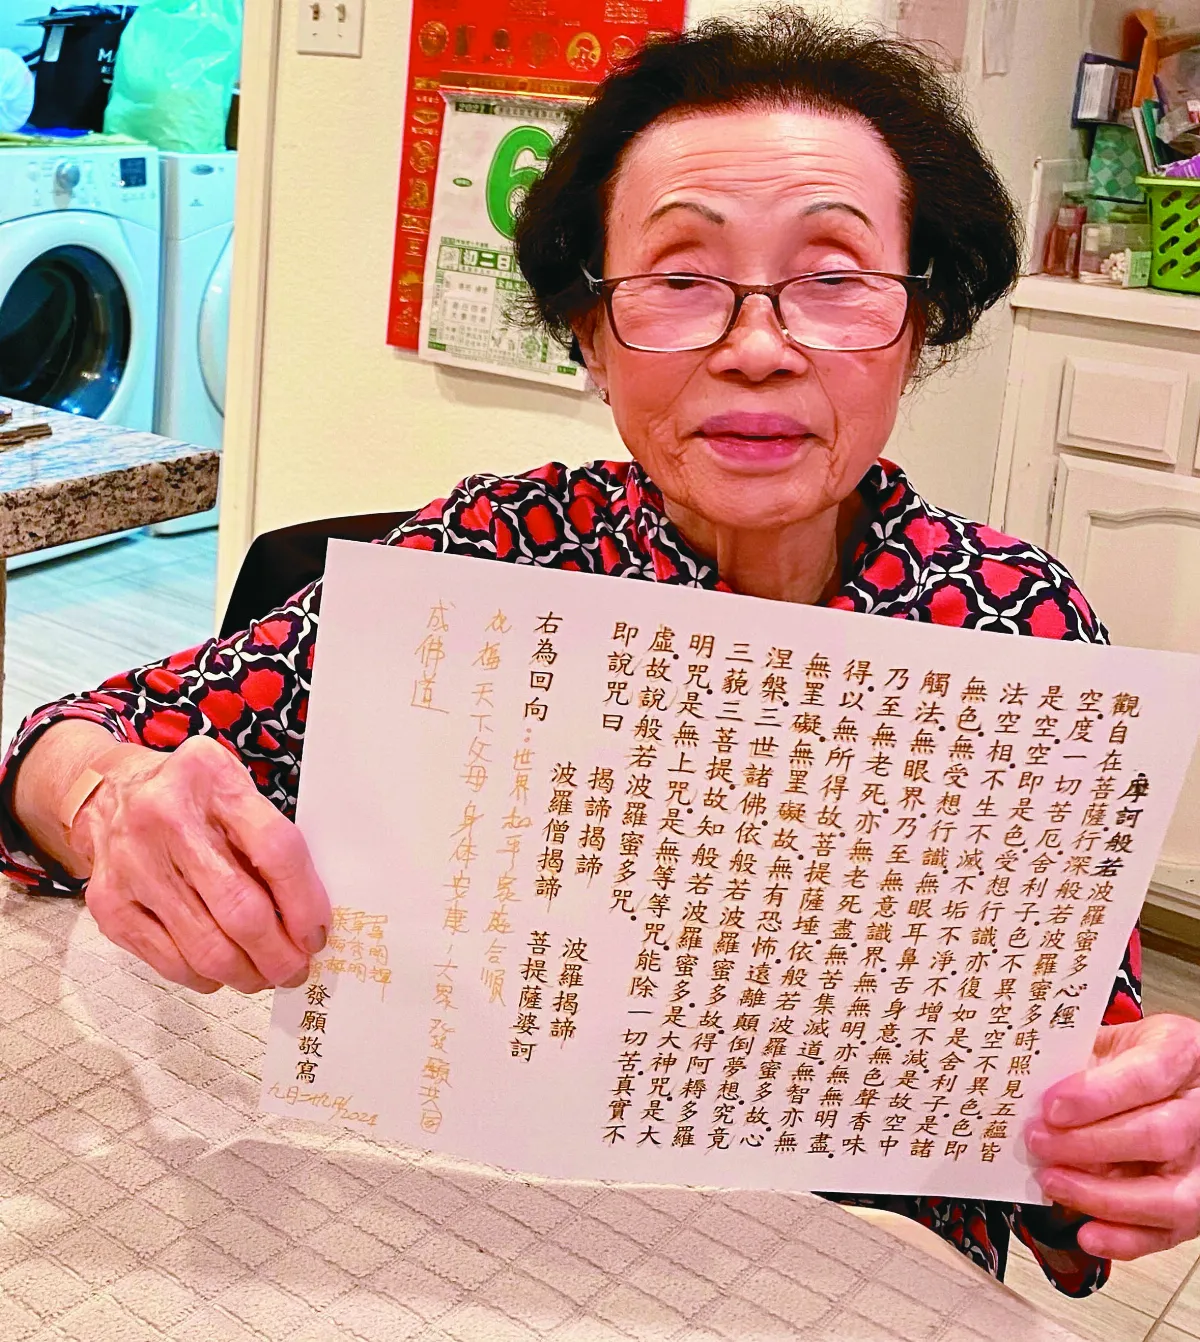 摩訶般若波羅蜜多心經
觀自在菩薩.行深般若波羅蜜多時.照見五蘊皆
空.度一切苦厄.舍利子.色不異空.空不異色.色即
是空.空即是色.受想行識.亦復如是.舍利子.是諸
法空相.不生不滅.不垢不淨.不增不減.是故空中
無色.無受想行識.無眼耳鼻舌身意.無色聲香味
觸法.無眼界.乃至無意識界.無無明.亦無無明盡.
乃至無老死.亦無老死盡.無苦集滅道.無智亦無
得.以無所得故.菩提薩埵.依般若波羅蜜多故.心
無罣礙.無罣礙故.無有恐怖.遠離顛倒夢想.究竟
涅槃.三世諸佛.依般若波羅蜜多故.得阿耨多羅
三藐三菩提.故知般若波羅蜜多.是大神咒.是大
明咒.是無上咒.是無等等咒.能除一切苦.真實不
虛.故說般若波羅蜜多咒.
即說咒曰
揭諦揭諦 波羅揭諦
波羅僧揭諦 菩提薩婆訶
右為回向:世界和平家庭合順
天下父母身体安康!大眾發願共同
成佛道
發願敬寫
2021
6
初二日